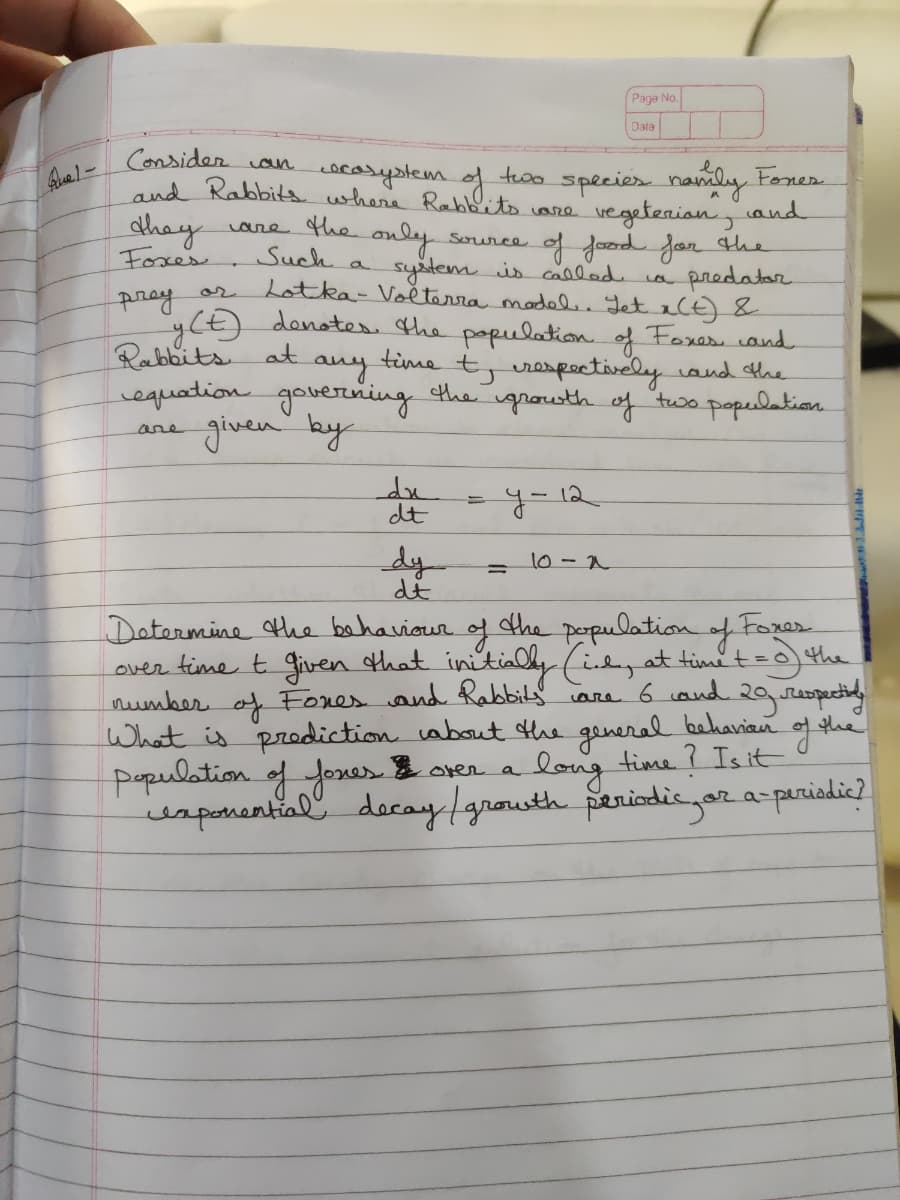 Page No.
Date
Que1- Consider an ecosystem of two species namely Foxes
and Rabbits where Rabbits are vegeterian, and
they are the only source of food for the
Foxes. Such a system is called a predator
prey or Lotka-Volterra model. Let x(t) &
y(t) denotes the population of Foxes and
Rabbits at any time t, respectively and the
equation governing the growth of two population
are given by
dx/dt = y - 12
dy/dt = 10 - x
Determine the behaviour of the population of Foxes
over time t given that initially (i.e, at time t = 0) the
number of Foxes and Rabbits are 6 and 20, respectively
What is prediction about the general behaviour of the
population of foxes over a long time? Is it
exponential decay/growth periodic, or a-periodic?